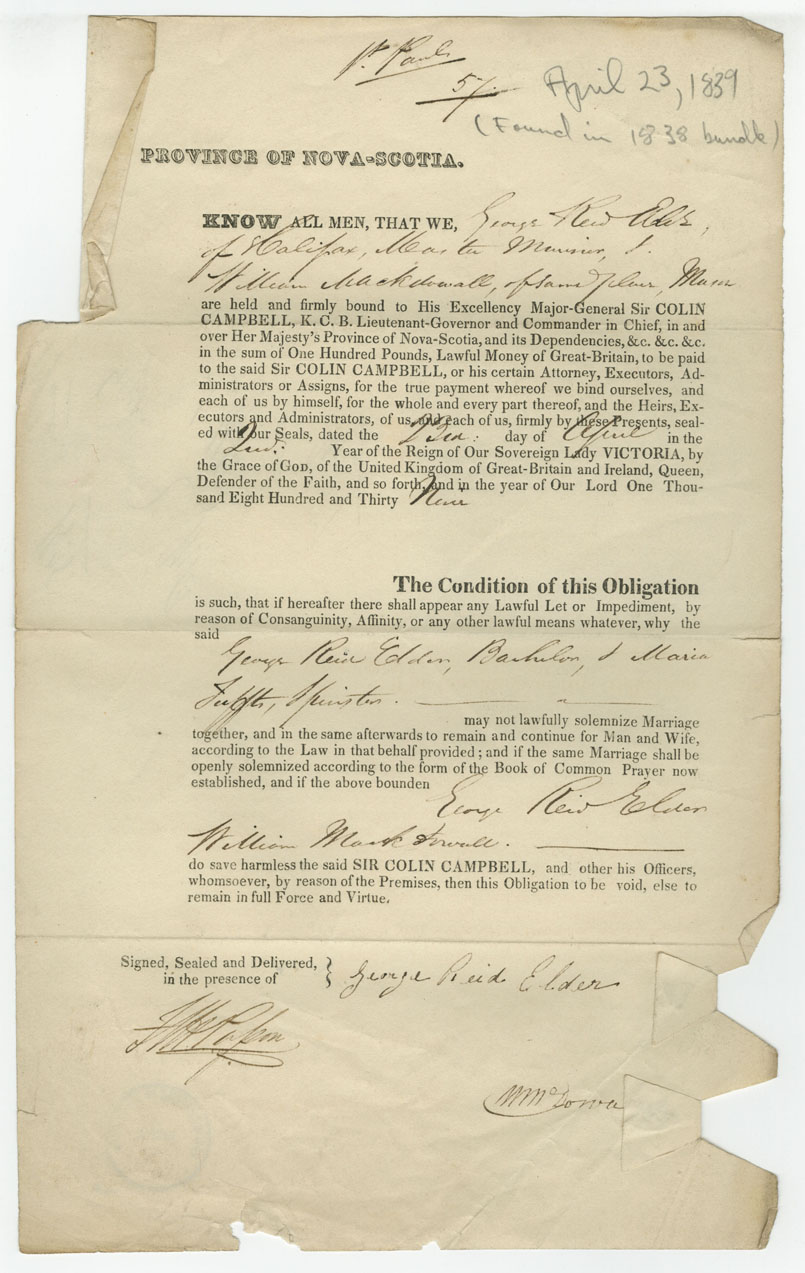 St. Pauls
5/.
April 23, 1839
(Found in 1838 bundle)
PROVINCE OF NOVA-SCOTIA.
KNOW ALL MEN, THAT WE, George Reid Elder,
of Halifax, Master Mariner, &
William Mackdowall, of same place,
are held and firmly bound to His Excellency Major-General Sir COLIN
CAMPBELL, K. C. B. Lieutenant-Governor and Commander in Chief, in and
over Her Majesty's Province of Nova-Scotia, and its Dependencies, &c. &c. &c.
in the sum of One Hundred Pounds, Lawful Money of Great-Britain, to be paid
to the said Sir COLIN CAMPBELL, or his certain Attorney, Executors, Ad-
ministrators or Assigns, for the true payment whereof we bind ourselves, and
each of us by himself, for the whole and every part thereof, and the Heirs, Ex-
ecutors and Administrators, of us, and each of us, firmly by these Presents, seal-
ed with our Seals, dated the 23rd: day of April in the
2nd: Year of the Reign of Our Sovereign Lady VICTORIA, by
the Grace of GOD, of the United Kingdom of Great-Britain and Ireland, Queen,
Defender of the Faith, and so forth, and in the year of Our Lord One Thou-
sand Eight Hundred and Thirty Nine
The Condition of this Obligation
is such, that if hereafter there shall appear any Lawful Let or Impediment, by
reason of Consanguinity, Affinity, or any other lawful means whatever, why the
said
George Reid Elder, Bachelor, & Maria
Spinster.
may not lawfully solemnize Marriage
together, and in the same afterwards to remain and continue for Man and Wife,
according to the Law in that behalf provided; and if the same Marriage shall be
openly solemnized according to the form of the Book of Common Prayer now
established, and if the above bounden
George Reid Elder
William Mackdowall.
do save harmless the said SIR COLIN CAMPBELL, and other his Officers,
whomsoever, by reason of the Premises, then this Obligation to be void, else to
remain in full Force and Virtue.
Signed, Sealed and Delivered,
in the presence of
George Reid Elder